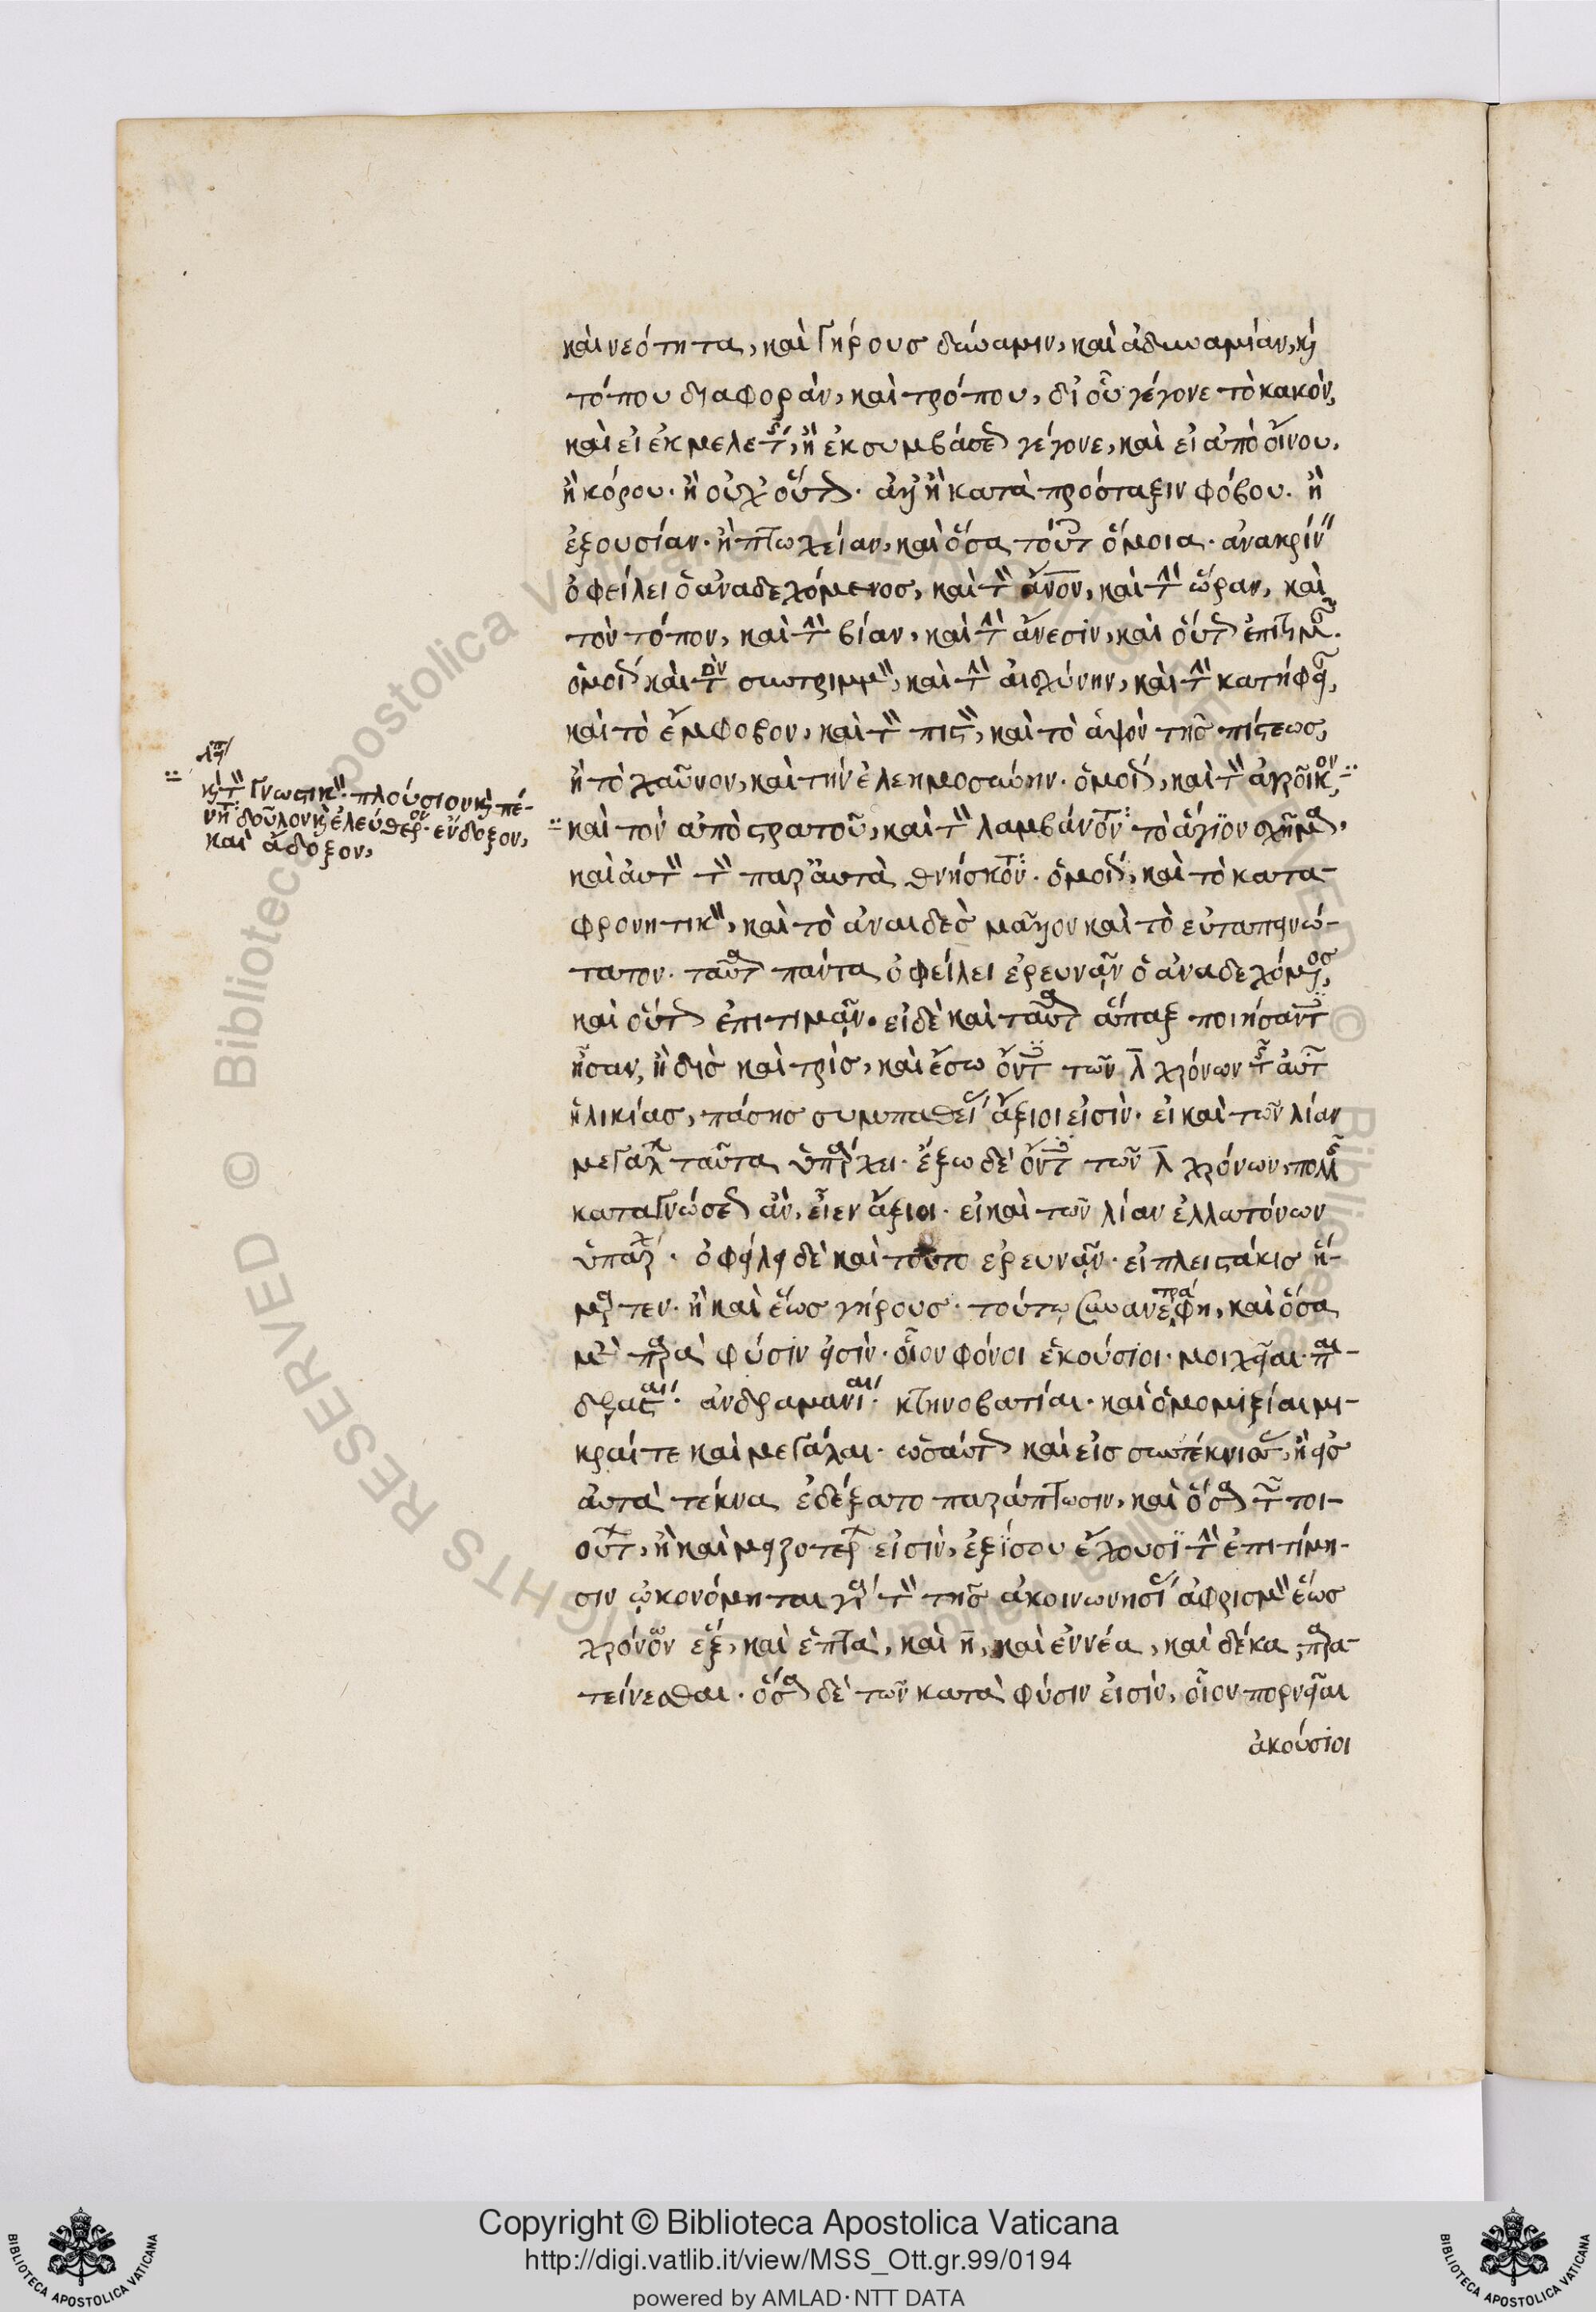 καὶ νεότητα, καὶ γήρους δύναμιν, καὶ ἀδυναμίαν, κ
τόπου διαφορὰν, καὶ τρόπου, δι οὗ γέγονε τὸ κακὸν,
καὶ εἰ ἐκ μελετ, ἢ ἐκ συμβάσε γέγονε, καὶ εἰ ἀπὸ οἴνου,
ἢ κόρου. ἢ οὐχ οὕτ. ἀλλ ἢ κατὰ πρόσταξιν φόβου. ἢ
ἐξουσίαν. ἢ πτωχείαν, καὶ ὅσα τούτ ὅμοια. ἀνακρίν
ὀφείλει ὁ ἀναδεχόμενος, καὶ τ ἄνον, καὶ τ ὥραν, καὶ
τὸν τόπον, καὶ τ βίαν, καὶ τ ἄνεσιν, καὶ οὕτ ἐπιτιμ.
ὁμοί καὶ τὸν συντριμμ, καὶ τ αἰσχύνην, καὶ τ κατήφ,
καὶ τὸ ἔμφοβον, καὶ τ πιστ, καὶ τὸ ἁψὸν τῆς πίστεως,
ἢ τὸ χαῦνον, καὶ τὴν ἐλεημοσύνην. ὁμοί, καὶ τ ἀγροῖκον,
καὶ τὸν ἀπὸ στρατοῦ, καὶ τ λαμβάνοντ τὸ ἅγιον σχῆμα,
καὶ αὐτ τ παρ αὐτὰ θνήσκοντ. ὁμοί, καὶ τὸ κατα-
φρονητικ, καὶ τὸ ἀναιδὲς μᾶλλον καὶ τὸ εὐταπεινώ-
τατον. ταῦτα πάντα ὀφείλει ἐρευνᾶν ὁ ἀναδεχόμος,
καὶ οὕτ ἐπιτιμᾶν. εἰ δὲ καὶ ταῦτα ἅπαξ ποιήσαντ
ἦσαν, ἢ δὶς καὶ τρὶς, καὶ ἔσω ὄντ τῶν λ χρόνων τ αὐτ
ἡλικίας, πάσης συμπαθεί ἄξιοι εἰσὶν. εἰ καὶ τῶν λίαν
μεγάλ ταῦτα ὑπάρχει. ἔξω δὲ ὄντ τῶν λ χρόνων, πολλ
καταγνώσε ἂν, εἶεν ἄξιοι. εἰ καὶ τῶν λίαν ἐλλατόνων
ὑπάρχ. ὀφείλει δὲ καὶ τοῦτο ἐρευνᾶν. εἰ πλειστάκις ἥ-
μαρτεν. ἢ καὶ ἕως γήρους. τούτῳ συνανετράφη, καὶ ὅσα
μὲ παρὰ φύσιν εἰσὶν. οἷον φόνοι ἑκούσιοι. μοιχεῖαι. παι-
δραστίαι. ἀνδραμανίαι. κτηνοβατίαι. καὶ ὁμομιξίαι μι-
κραί τε καὶ μεγάλαι. ὡσαύτ καὶ εἰς συντέκνισσ, ἢ εἰς
αὐτὰ τέκνα ἐδέξατο παράπτωσιν, καὶ ὅσα τ τοι-
οῦτ, ἢ καὶ μειζοτερ εἰσὶν, ἐξίσου ἔχουσι τ ἐπιτίμη-
σιν ᾠκονόμηται γὰρ τ τῆς ἀκοινωνησί ἀφρισμ ἕως
χρόνων ἕξ, καὶ ἑπτὰ, καὶ η, καὶ ἐννέα, καὶ δέκα, παρα-
τείνεσθαι. ὅσα δὲ τῶν κατὰ φύσιν εἰσὶν, οἷον πορνεῖαι
ἀκούσιοι
κ τ γνωστικ. πλούσιον κ πέ-
νητ. δοῦλον κ ἐλεύθερον. ἔνδοξον,
καὶ ἄδοξον,
Copyright © Biblioteca Apostolica Vaticana
http://digi.vatlib.it/view/MSS_Ott.gr.99/0194
powered by AMLAD·NTT DATA
BIBLIOTECA APOSTOLICA VATICANA
BIBLIOTECA APOSTOLICA VATICANA